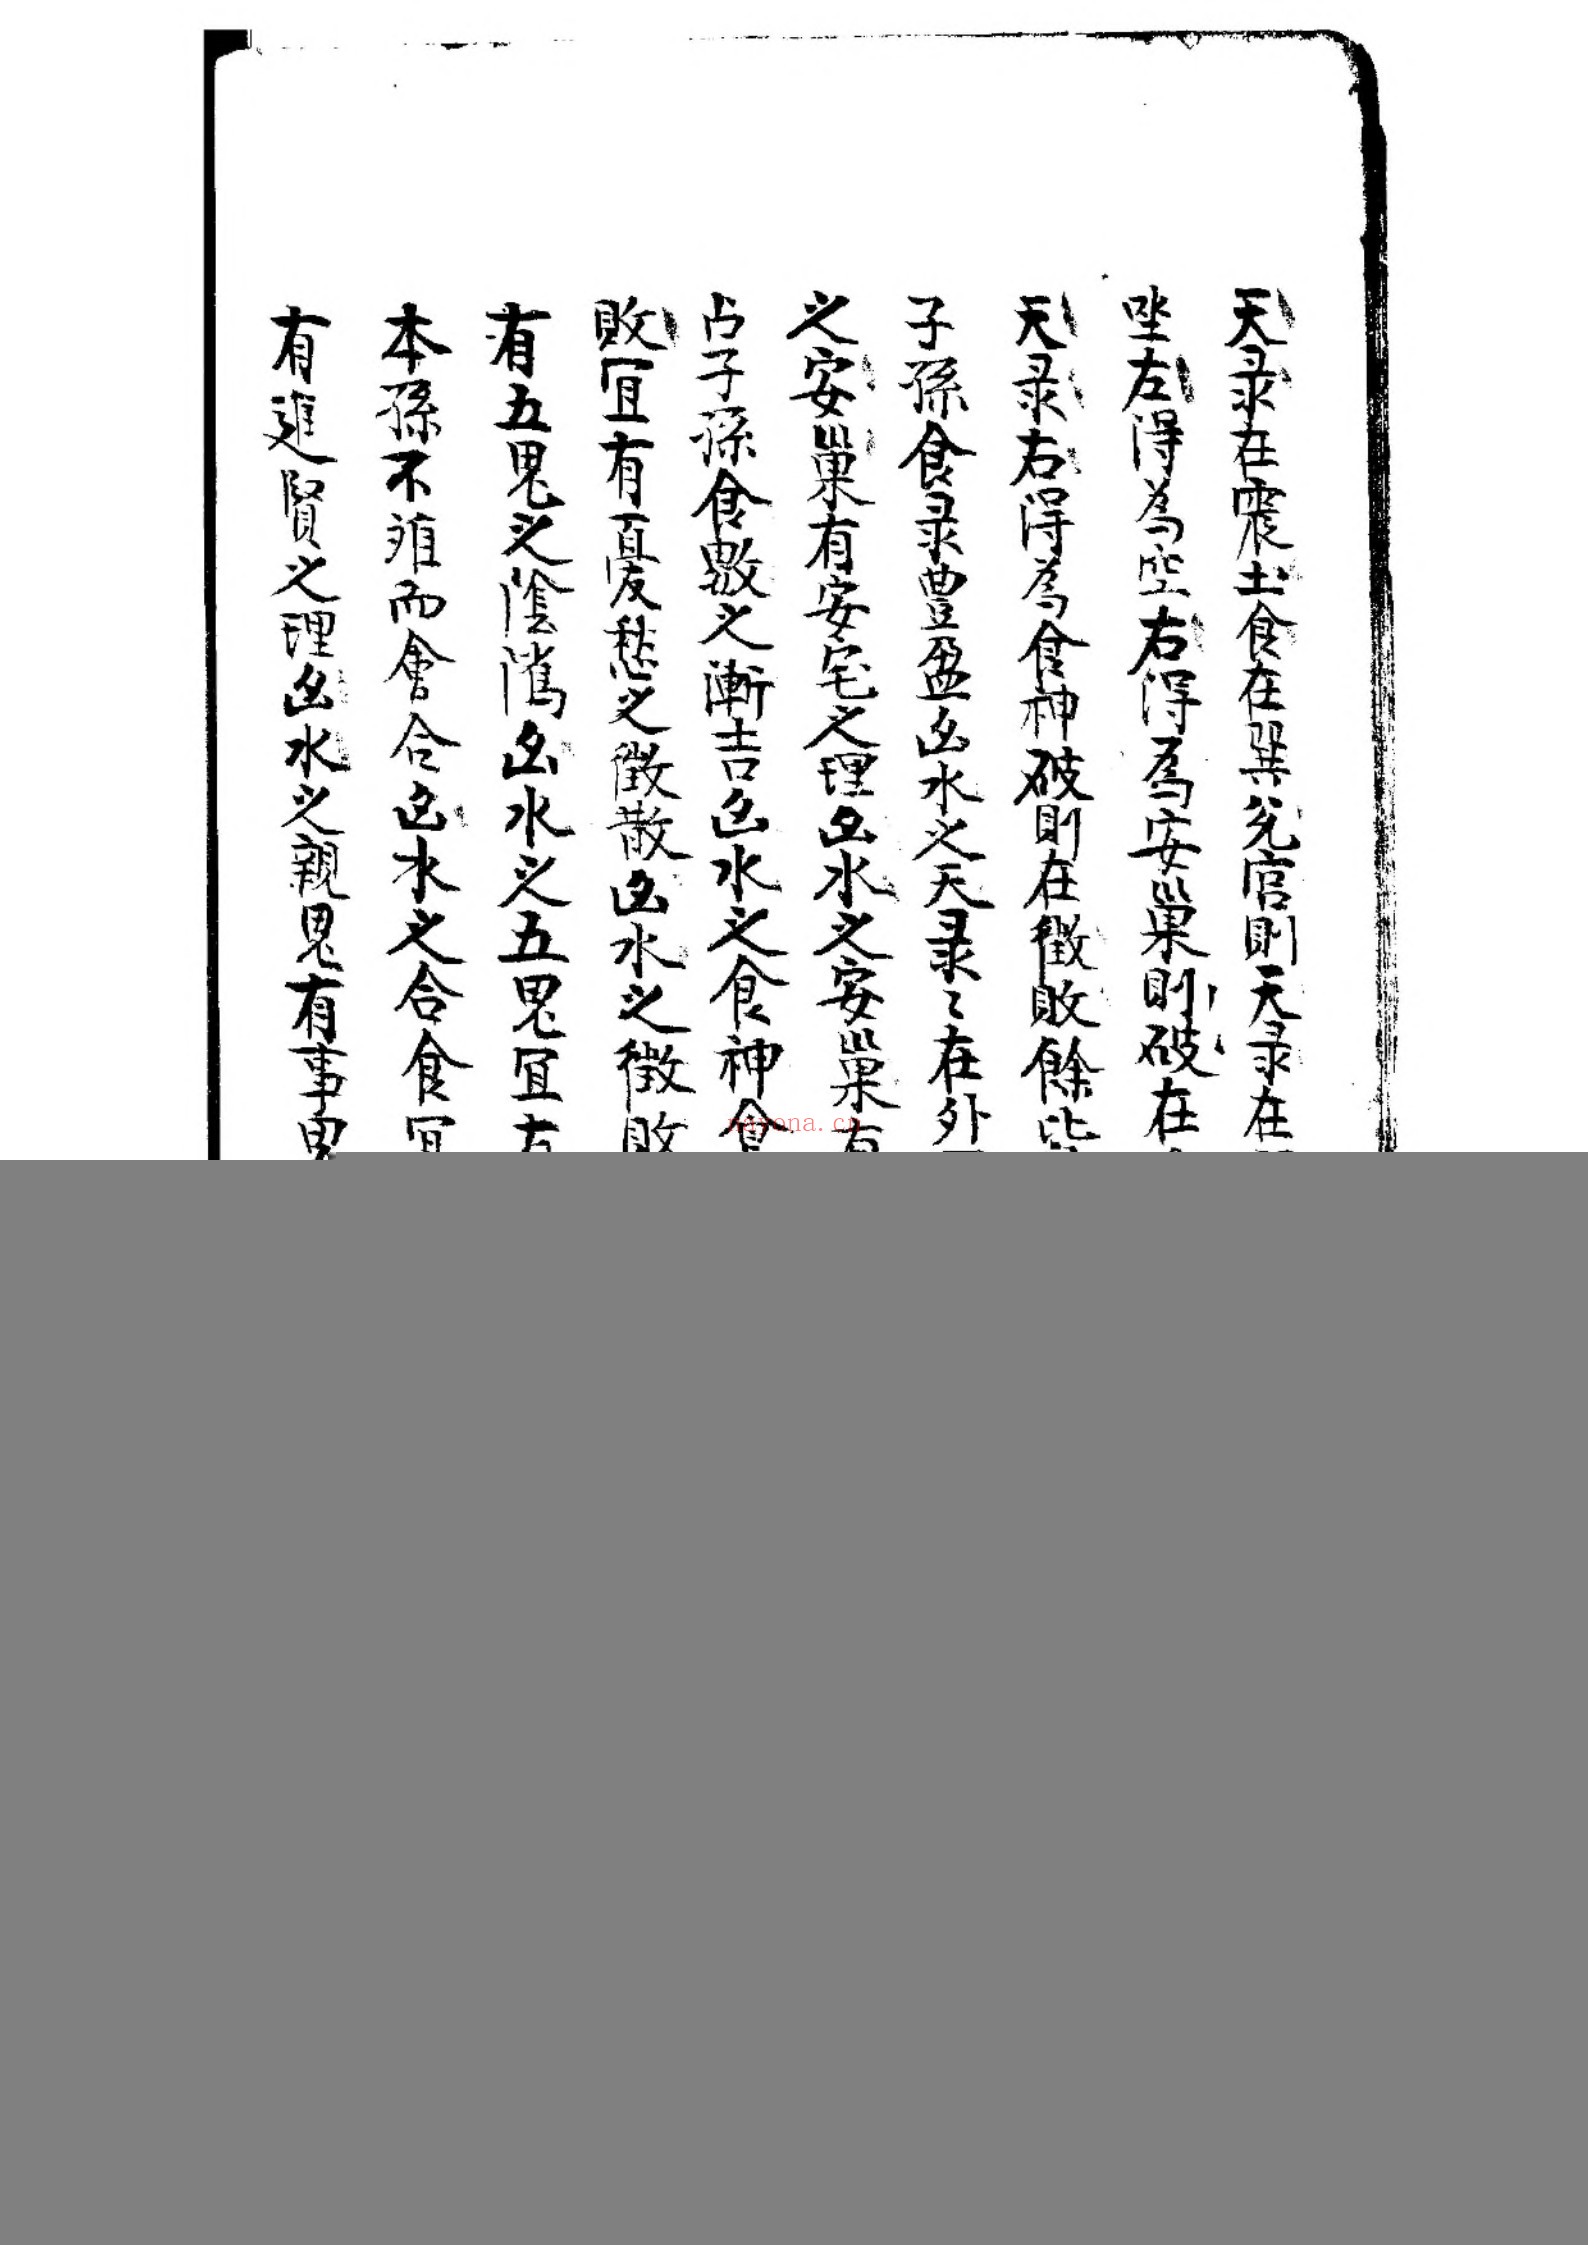 天录在震土食在巽兊宫則天录在
坐左得為空右得為安巢則破在
天录右得為食神破則在徵敗餘
子孫食录豊盈凶水之天录〻在外
之安巢有安宅之理凶水之安巢有
占子孫食數之漸吉凶水之食神食
敗冝有憂愁之徵散凶水之徵敗
有五鬼之陰凶水之五鬼冝
本孫不 而會合凶水之合食冝
有進賢之理凶水之親鬼有事鬼
nayona.cn